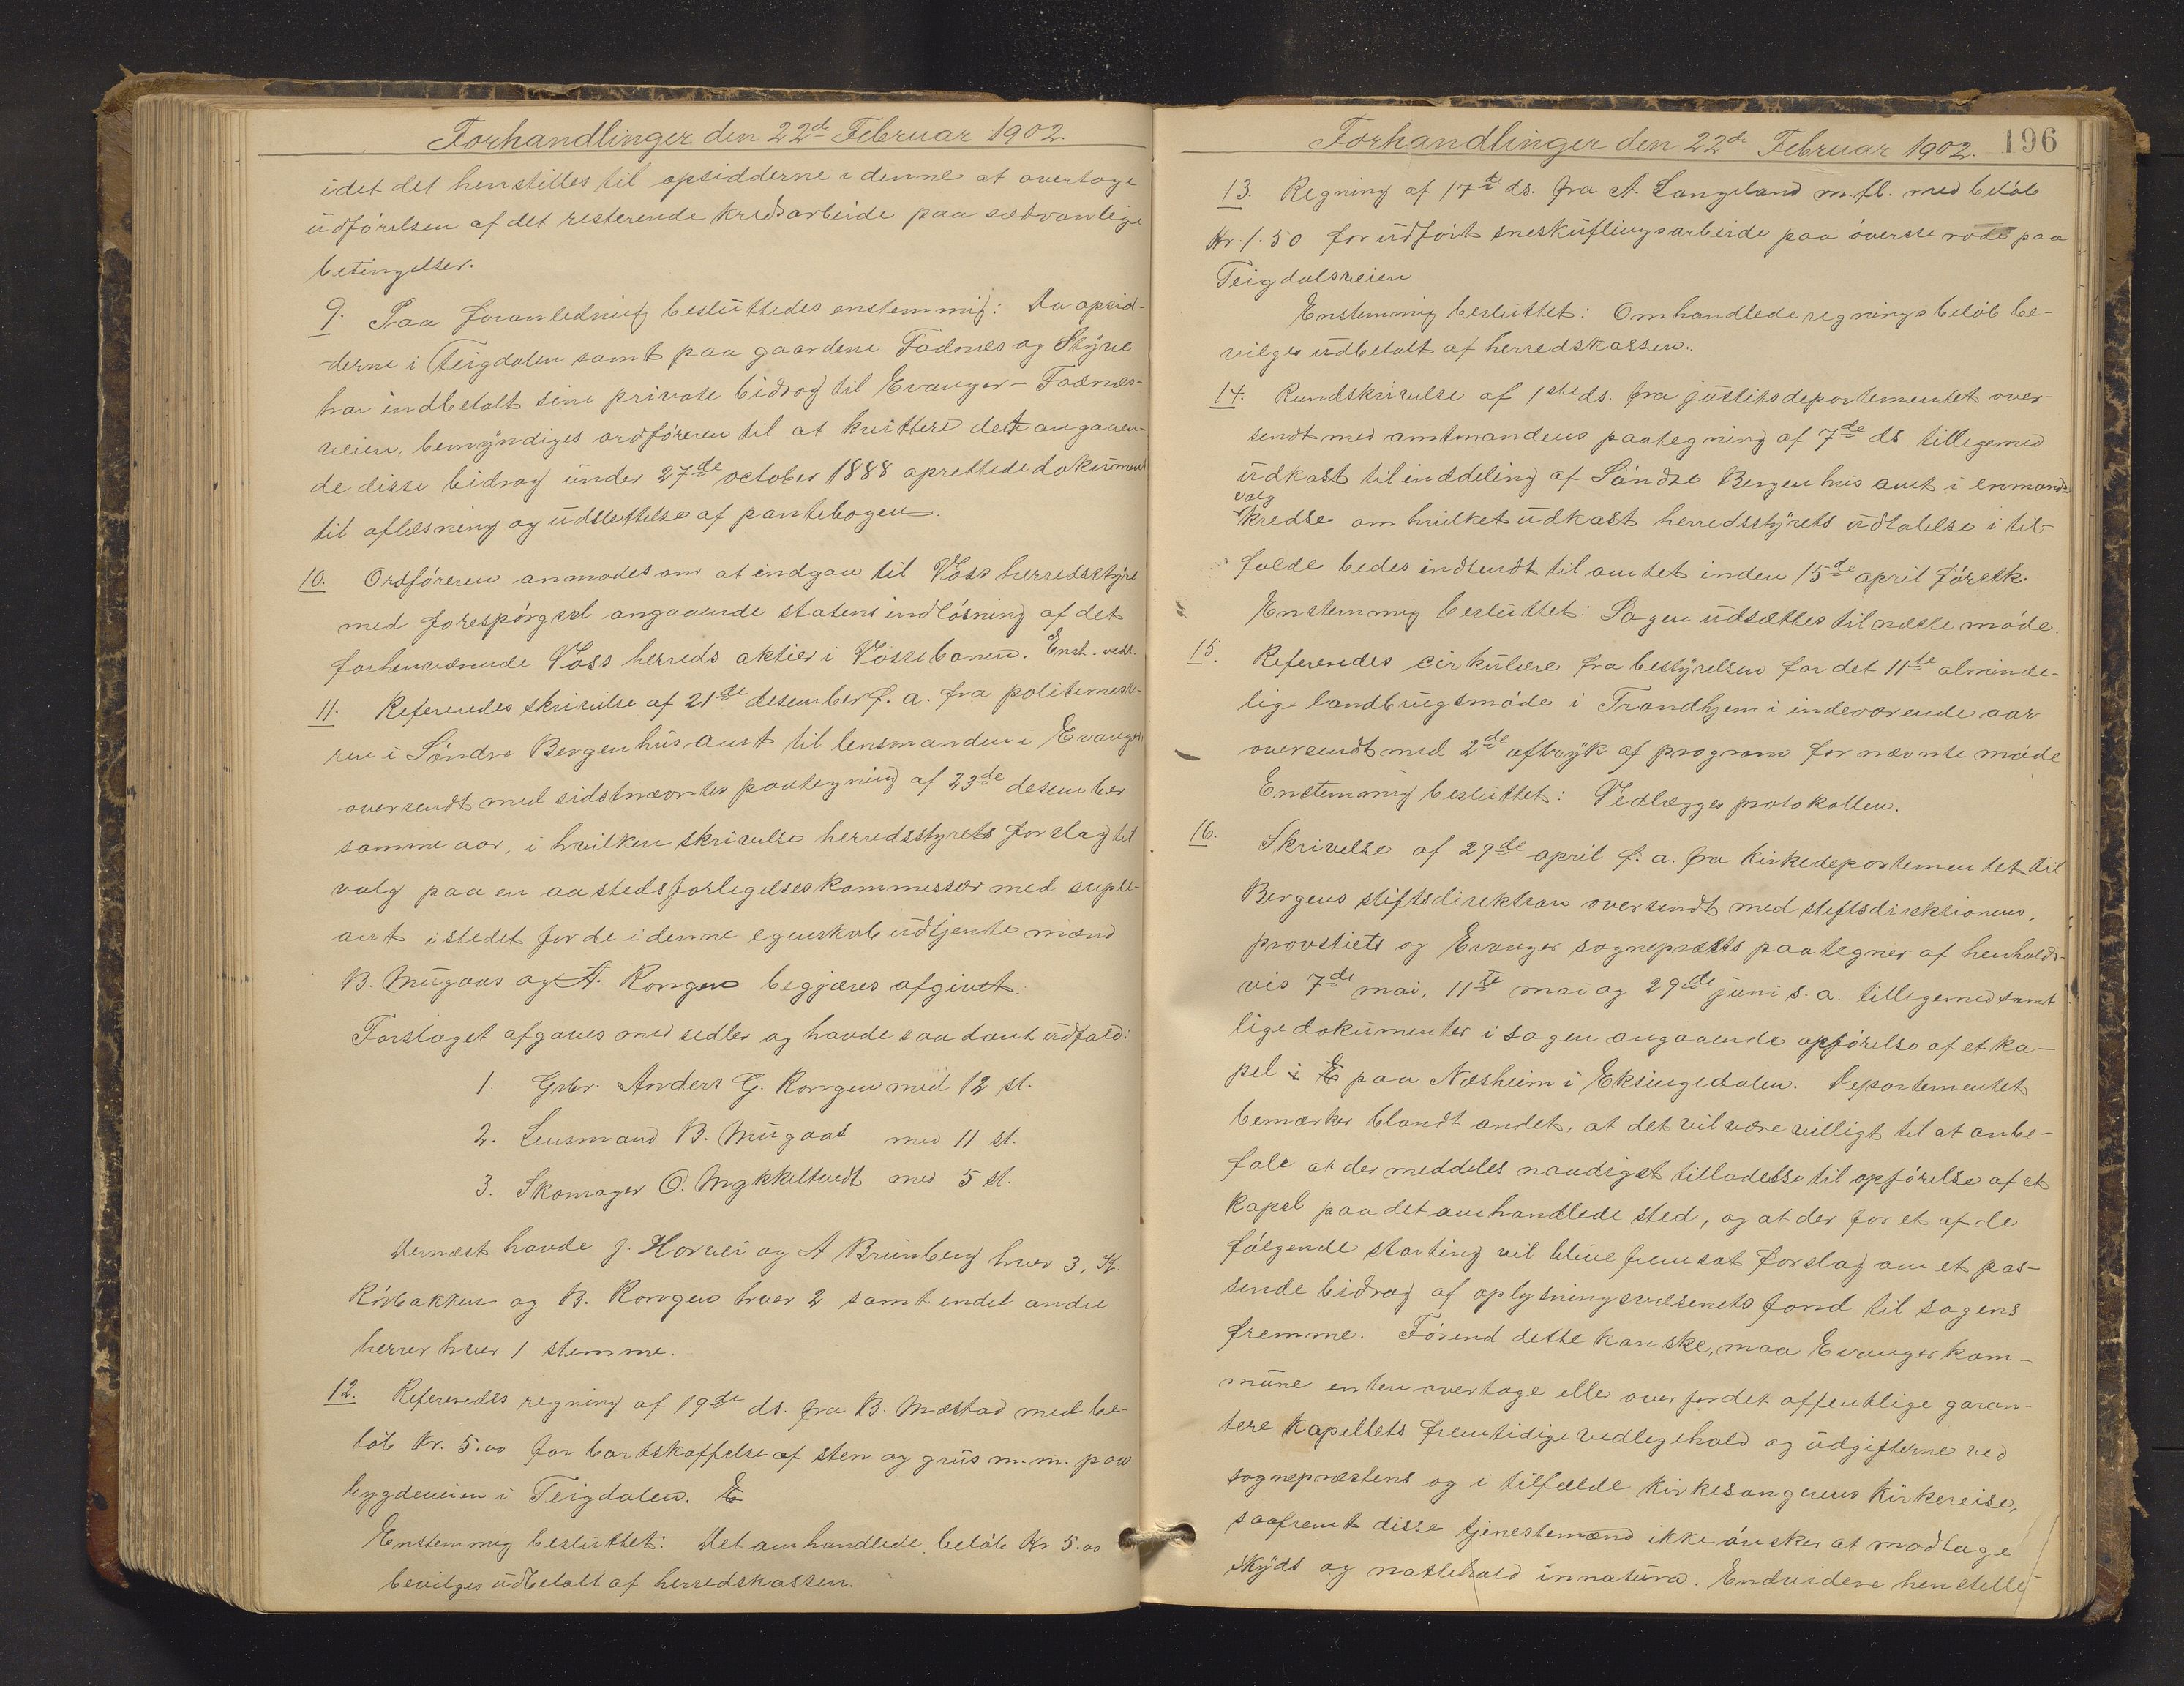 Forhandlinger den 22de Februar 1902.
idet det henstilles til opsidderne i denne at overtage
udførelsen af det resterende kredsarbeide paa sædvanlige
betingelser.
9. Paa foranledning besluttedes enstemmig: Da opsid-
derne i Teigdalen samt paa gaardene Fadnes og Styve
har indbetalt sine private bidrag til Evanger-Fadnes-
veien, bemyndiges ordføreren til at kvittere det angaaen-
de disse bidrag under 27de october 1888 oprettede dokument
til aflæsning og udslettelse af pantebogen.
10. Ordføreren anmodes om at indgaa til Voss herredsstyre
med forespørgsel angaaende statens indløsning af det
forhenværende Voss herreds aktier i Vossebanen. Enst. vedt.
11. Refereredes skrivelse af 21de desember f. a. fra politimeste-
ren i Søndre Bergenhus amt til lensmanden i Evanger
oversendt med sidstnævntes paategning af 23de desember
samme aar, i hvilken skrivelse herredsstyrets forslag til
valg paa en aastedsforligelseskommissær med suple-
ant istedet for de i denne egenskab udtjente mænd
B. Mugaas og A. Rongen begjæres afgivet.
Forslaget afgaves med sedler og havde saadant udfald:
1. Grbr. Anders G. Rongen med 12 st.
2. Lensmand B. Mugaas med 11 st.
3. Skomager O. Mykkeltvedt med 5 st.
Dernæst havde J. Horvei og A Brunberg hver 3, K.
Rørbakken og B. Rongen hver 2 samt endel andre
herrer hver 1 stemme.
12. Refereredes regning af 19de ds. fra B. Mæstad med be-
løb Kr. 5.00 for bortskaffelse af sten og grus m. m. paa
bygdeveien i Teigdalen. E
Enstemmig besluttet: Det omhandlede beløb Kr 5.00
bevilges udbetalt af herredskassen.
Forhandlinger den 22de Februar 1902. 196
13. Regning af 17de ds. fra A. Langeland m. fl. med beløb
Kr. 1.50 for udført sneskuflingsarbeide paa øverste rode paa
Teigdalsveien
Enstemmig besluttet: Omhandlede regningsbeløb be-
vilges udbetalt af herredskassen.
14. Rundskrivelse af 1ste ds. fra justitsdepartementet over-
sendt med amtmandens paategning af 7de ds tilligemed
udkast til inddeling af Søndre Bergenhus amt i enmands-
valg
kredse om hvilket udkast herredsstyrets udtalelse i til-
fælde bedes indsendt til amtet inden 15de april førstk.
Enstemmig besluttet: Sagen udsættes til næste møde.
15. Refereredes cirkulære fra bestyrelsen for det 11te alminde-
lige landbrugsmøde i Trondhjem i indeværende aar
oversendt med 2de aftryk af program for nævnte møde
Enstemmig besluttet: Vedlægges protokollen.
16. Skrivelse af 29de april f. a. fra Kirkedepartementet til
Bergens stiftsdirektion oversendt med stiftsdirektionens,
provstiets og Evanger sogneprests paategner af henholds-
vis 7de mai, 11te mai og 29de juni s. a. tilligemed samt
lige dokumenter i sagen angaaende opførelse af et ka-
pel i E paa Næsheim i Eksingedalen. Departementet
bemærker blandt andet, at det vil være villigt til at anbe-
fale at der meddeles naadigst tilladelse til opførelse af et
Kapel paa det omhandlede sted, og at der for et af de
følgende storting vil blive fremsat forslag om et pas-
sende bidrag af oplysningsvæsenets fond til sagens
fremme. Førend dette kan ske, maa Evanger kom-
mune enten overtage eller overfor det offentlige garan-
tere Kapellets fremtidige vedlegehold og udgifterne ved
sogneprestens og i tilfælde kirkesangerens Kirkereise,
saafremt disse tjenestemænd ikke ønsker at modtage
skyds og nattehold innatura. Endvidere henstille